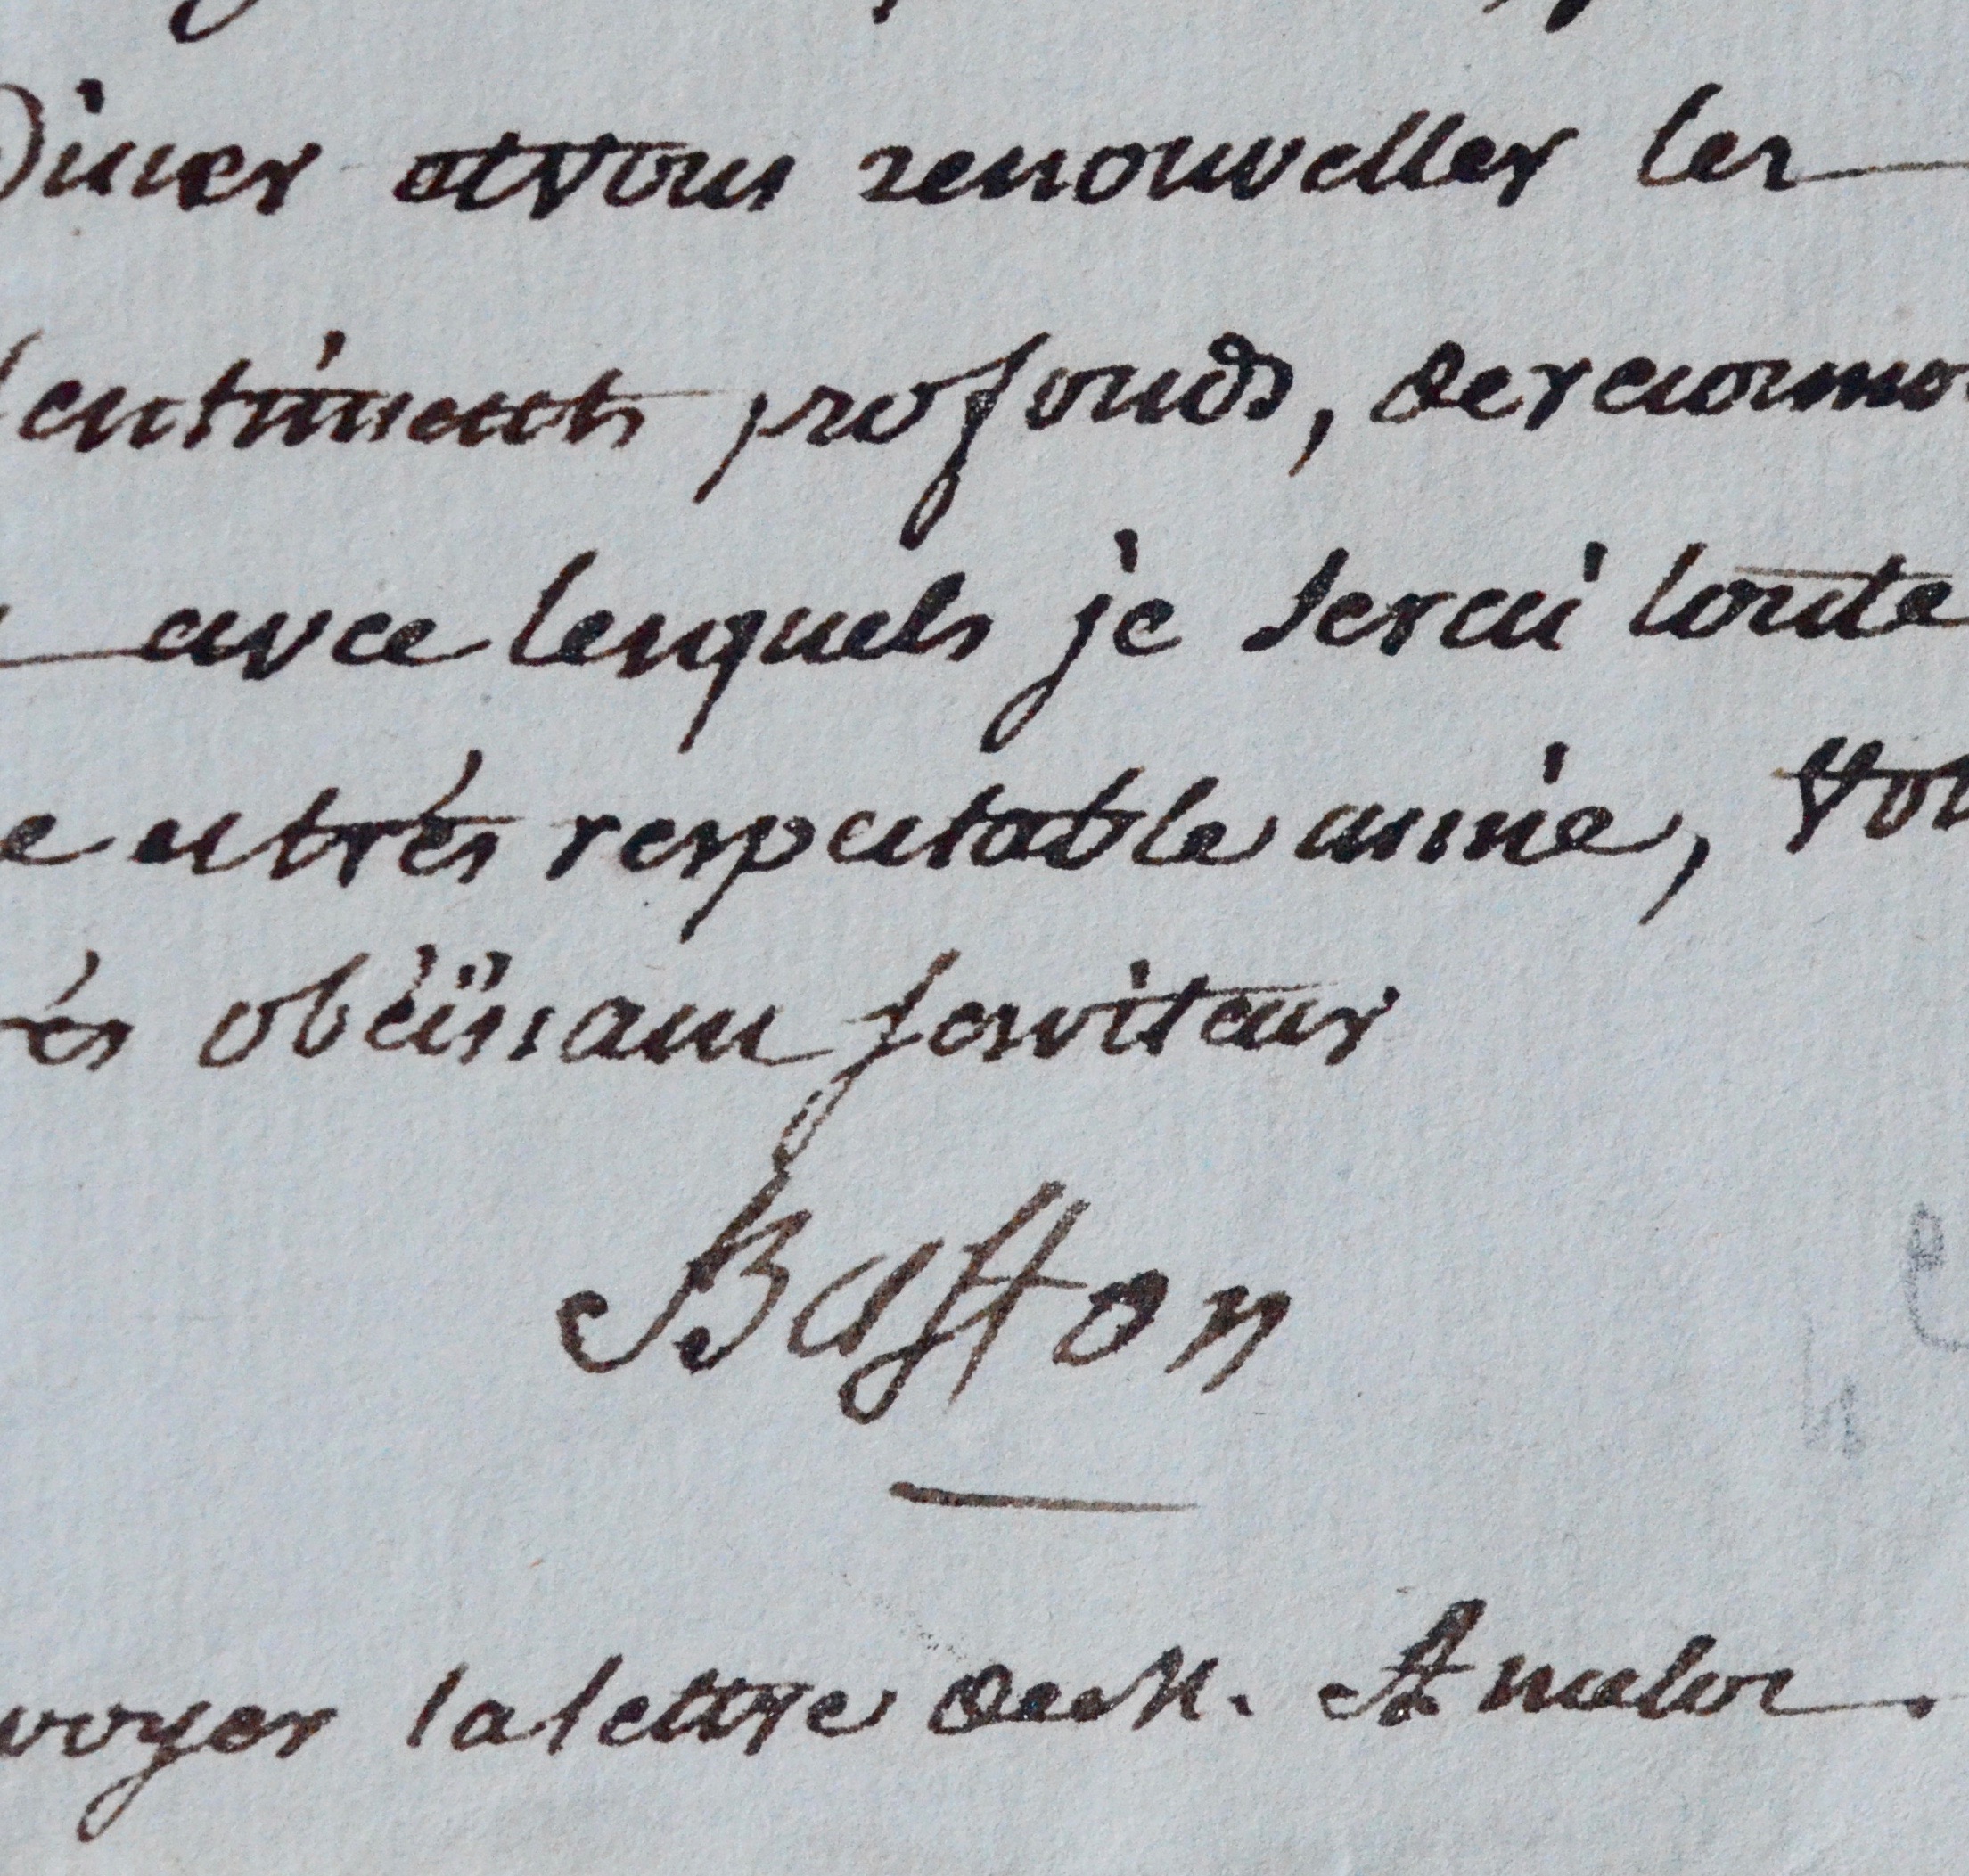 Diner et vous renouveller les
sentiments profonds, de reconnoi
avec lesquels je serai toute
e et très respectable amie, Vot
rès obéïssant serviteur
Baston
voyer la lettre de M. Amelot.